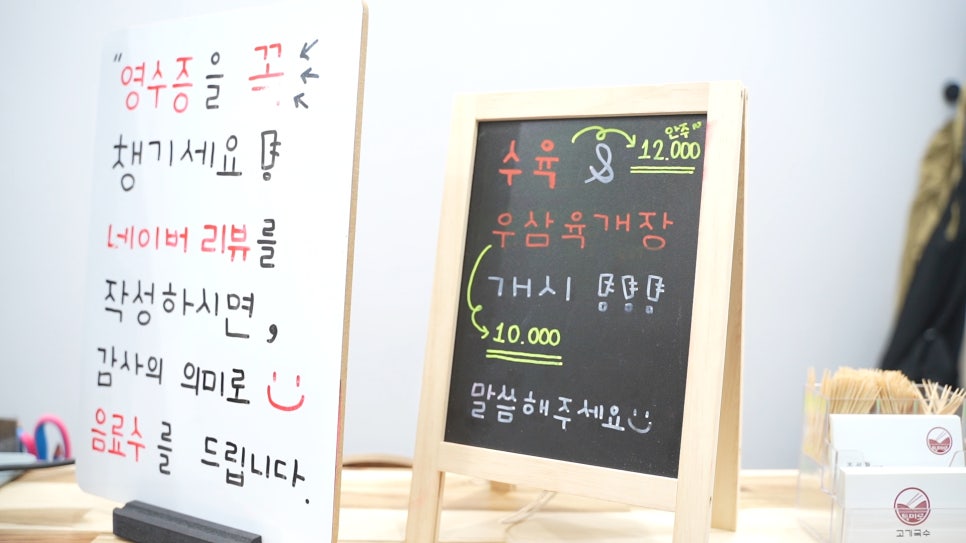 "영수증을 꼭
챙기세요!
네이버 리뷰를
작성하시면,
감사의 의미로
음료수를 드립니다.
수육 &
안주
12.000
우삼육개장
개시 !!!
10.000
말씀해주세요
고기국수